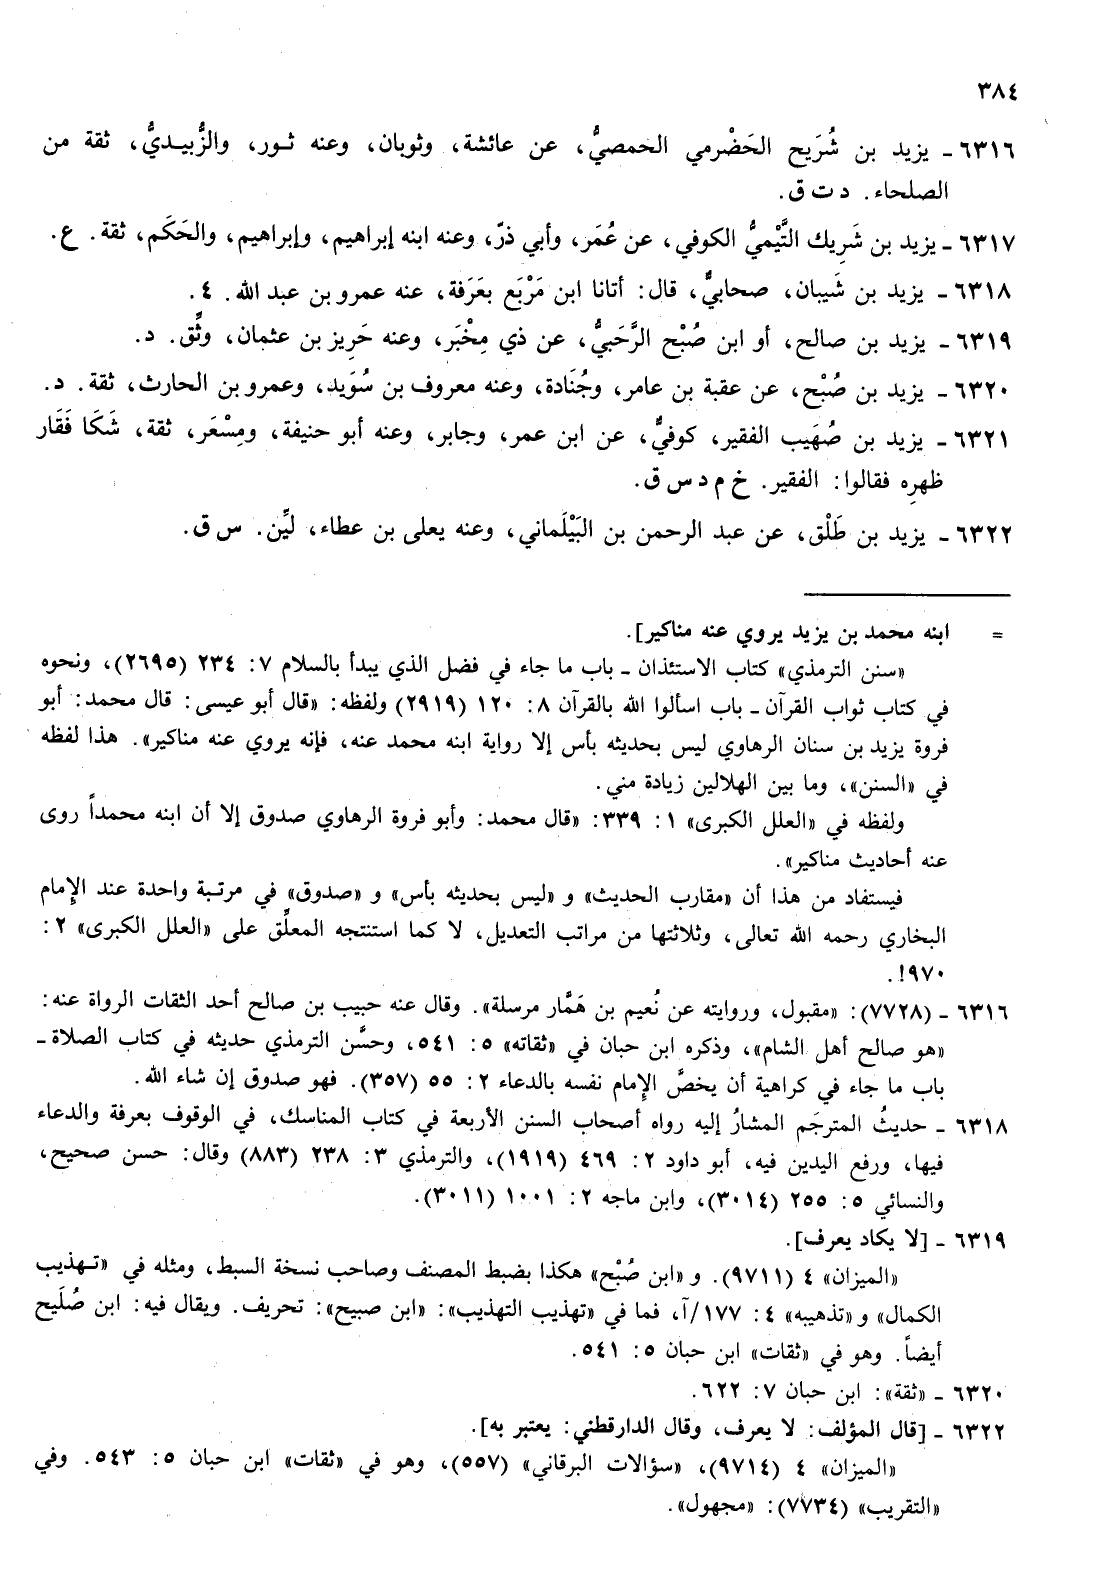 ٣٨٤
٦٣١٦ - يزيد بن شُرَيح الحَضْرمي الحمصيُّ، عن عائشة، وثوبان، وعنه ثـور، والزُّبيـديُّ، ثقة من
الصلحاء. د ت ق.
٦٣١٧ - يزيد بن شَرِيك التَّيْميُّ الكوفي، عن عُمَر، وأبي ذرّ، وعنه ابنه إبراهيم، وإبراهيم، والحَكَم، ثقة. ع.
٦٣١٨ - يزيد بن شَيبان، صحابيٌّ، قال: أتانا ابن مَرْبَع بعَرَفة، عنه عمرو بن عبد الله. ٤.
٦٣١٩ - يزيد بن صالح، أو ابن صُبْح الرَّحَبيُّ، عن ذي مِخْبَر، وعنه حَرِيز بن عثمان، وثِّق. د.
٦٣٢٠ - يزيد بن صُبْح، عن عقبة بن عامر، وجُنَادة، وعنه معروف بن سُوَيد، وعمرو بن الحارث، ثقة. د.
٦٣٢١ - يزيد بن صُهَيب الفقير، كوفيٌّ، عن ابن عمر، وجابر، وعنه أبو حنيفة، ومِسْعَر، ثقة، شَكَا فَقَار
ظهرِه فقالوا: الفقير. خ م د س ق.
٦٣٢٢ - يزيد بن طَلْق، عن عبد الرحمن بن البَيْلَماني، وعنه يعلى بن عطاء، ليِّن. س ق.
= ابنه محمد بن يزيد يروي عنه مناكير].
«سنن الترمذي» كتاب الاستئذان - باب ما جاء في فضل الذي يبدأ بالسلام ٧: ٢٣٤ (٢٦٩٥)، ونحوه
في كتاب ثواب القرآن - باب اسألوا الله بالقرآن ٨: ١٢٠ (٢٩١٩) ولفظه: «قال أبو عيسى: قال محمد: أبو
فروة يزيد بن سنان الرهاوي ليس بحديثه بأس إلا رواية ابنه محمد عنه، فإنه يروي عنه مناكير». هذا لفظه
في «السنن»، وما بين الهلالين زيادة مني.
ولفظه في «العلل الكبرى» ١: ٣٣٩: «قال محمد: وأبو فروة الرهاوي صدوق إلا أن ابنه محمداً روى
عنه أحاديث مناكير».
فيستفاد من هذا أن «مقارب الحديث» و «ليس بحديثه بأس» و «صدوق» في مرتـبة واحدة عند الإمام
البخاري رحمه الله تعالى، وثلاثتها من مراتب التعديل، لا كما استنتجه المعلِّق على «العلل الكبرى» ٢:
٩٧٠!.
٦٣١٦ - (٧٧٢٨): «مقبول، وروايته عن نُعيم بن هَمَّار مرسلة». وقال عنه حبيب بن صالح أحد الثقات الرواة عنه:
«هو صالح أهل الشام»، وذكره ابن حبان في «ثقاته» ٥: ٥٤١، وحسَّن الترمذي حديثه في كتاب الصلاة -
باب ما جاء في كراهية أن يخصَّ الإمام نفسه بالدعاء ٢: ٥٥ (٣٥٧). فهو صدوق إن شاء الله.
٦٣١٨ - حديثُ المترجَم المشارُ إليه رواه أصحاب السنن الأربعة في كتاب المناسك، في الوقوف بعرفة والدعاء
فيها، ورفع اليدين فيه، أبو داود ٢: ٤٦٩ (١٩١٩)، والترمذي ٣: ٢٣٨ (٨٨٣) وقال: حسن صحيح،
والنسائي ٥: ٢٥٥ (٣٠١٤)، وابن ماجه ٢: ١٠٠١ (٣٠١١).
٦٣١٩ - [لا يكاد يعرف].
«الميزان» ٤ (٩٧١١). و «ابن صُبْح» هكذا بضبط المصنف وصاحب نسخة السبط، ومثله في «تـهذيب
الكمال» و «تذهيبه» ٤: ١٧٧/آ، فما في «تهذيب التهذيب»: «ابن صبيح»: تحريف. ويقال فيه: ابن صُلَيح
أيضاً. وهو في «ثقات» ابن حبان ٥: ٥٤١.
٦٣٢٠ - «ثقة»: ابن حبان ٧: ٦٢٢.
٦٣٢٢ - [قال المؤلف: لا يعرف، وقال الدارقطني: يعتبر به].
«الميزان» ٤ (٩٧١٤)، «سؤالات البرقاني» (٥٥٧)، وهو في «ثقات» ابن حبان ٥: ٥٤٣. وفي
«التقريب» (٧٧٣٤): «مجهول».